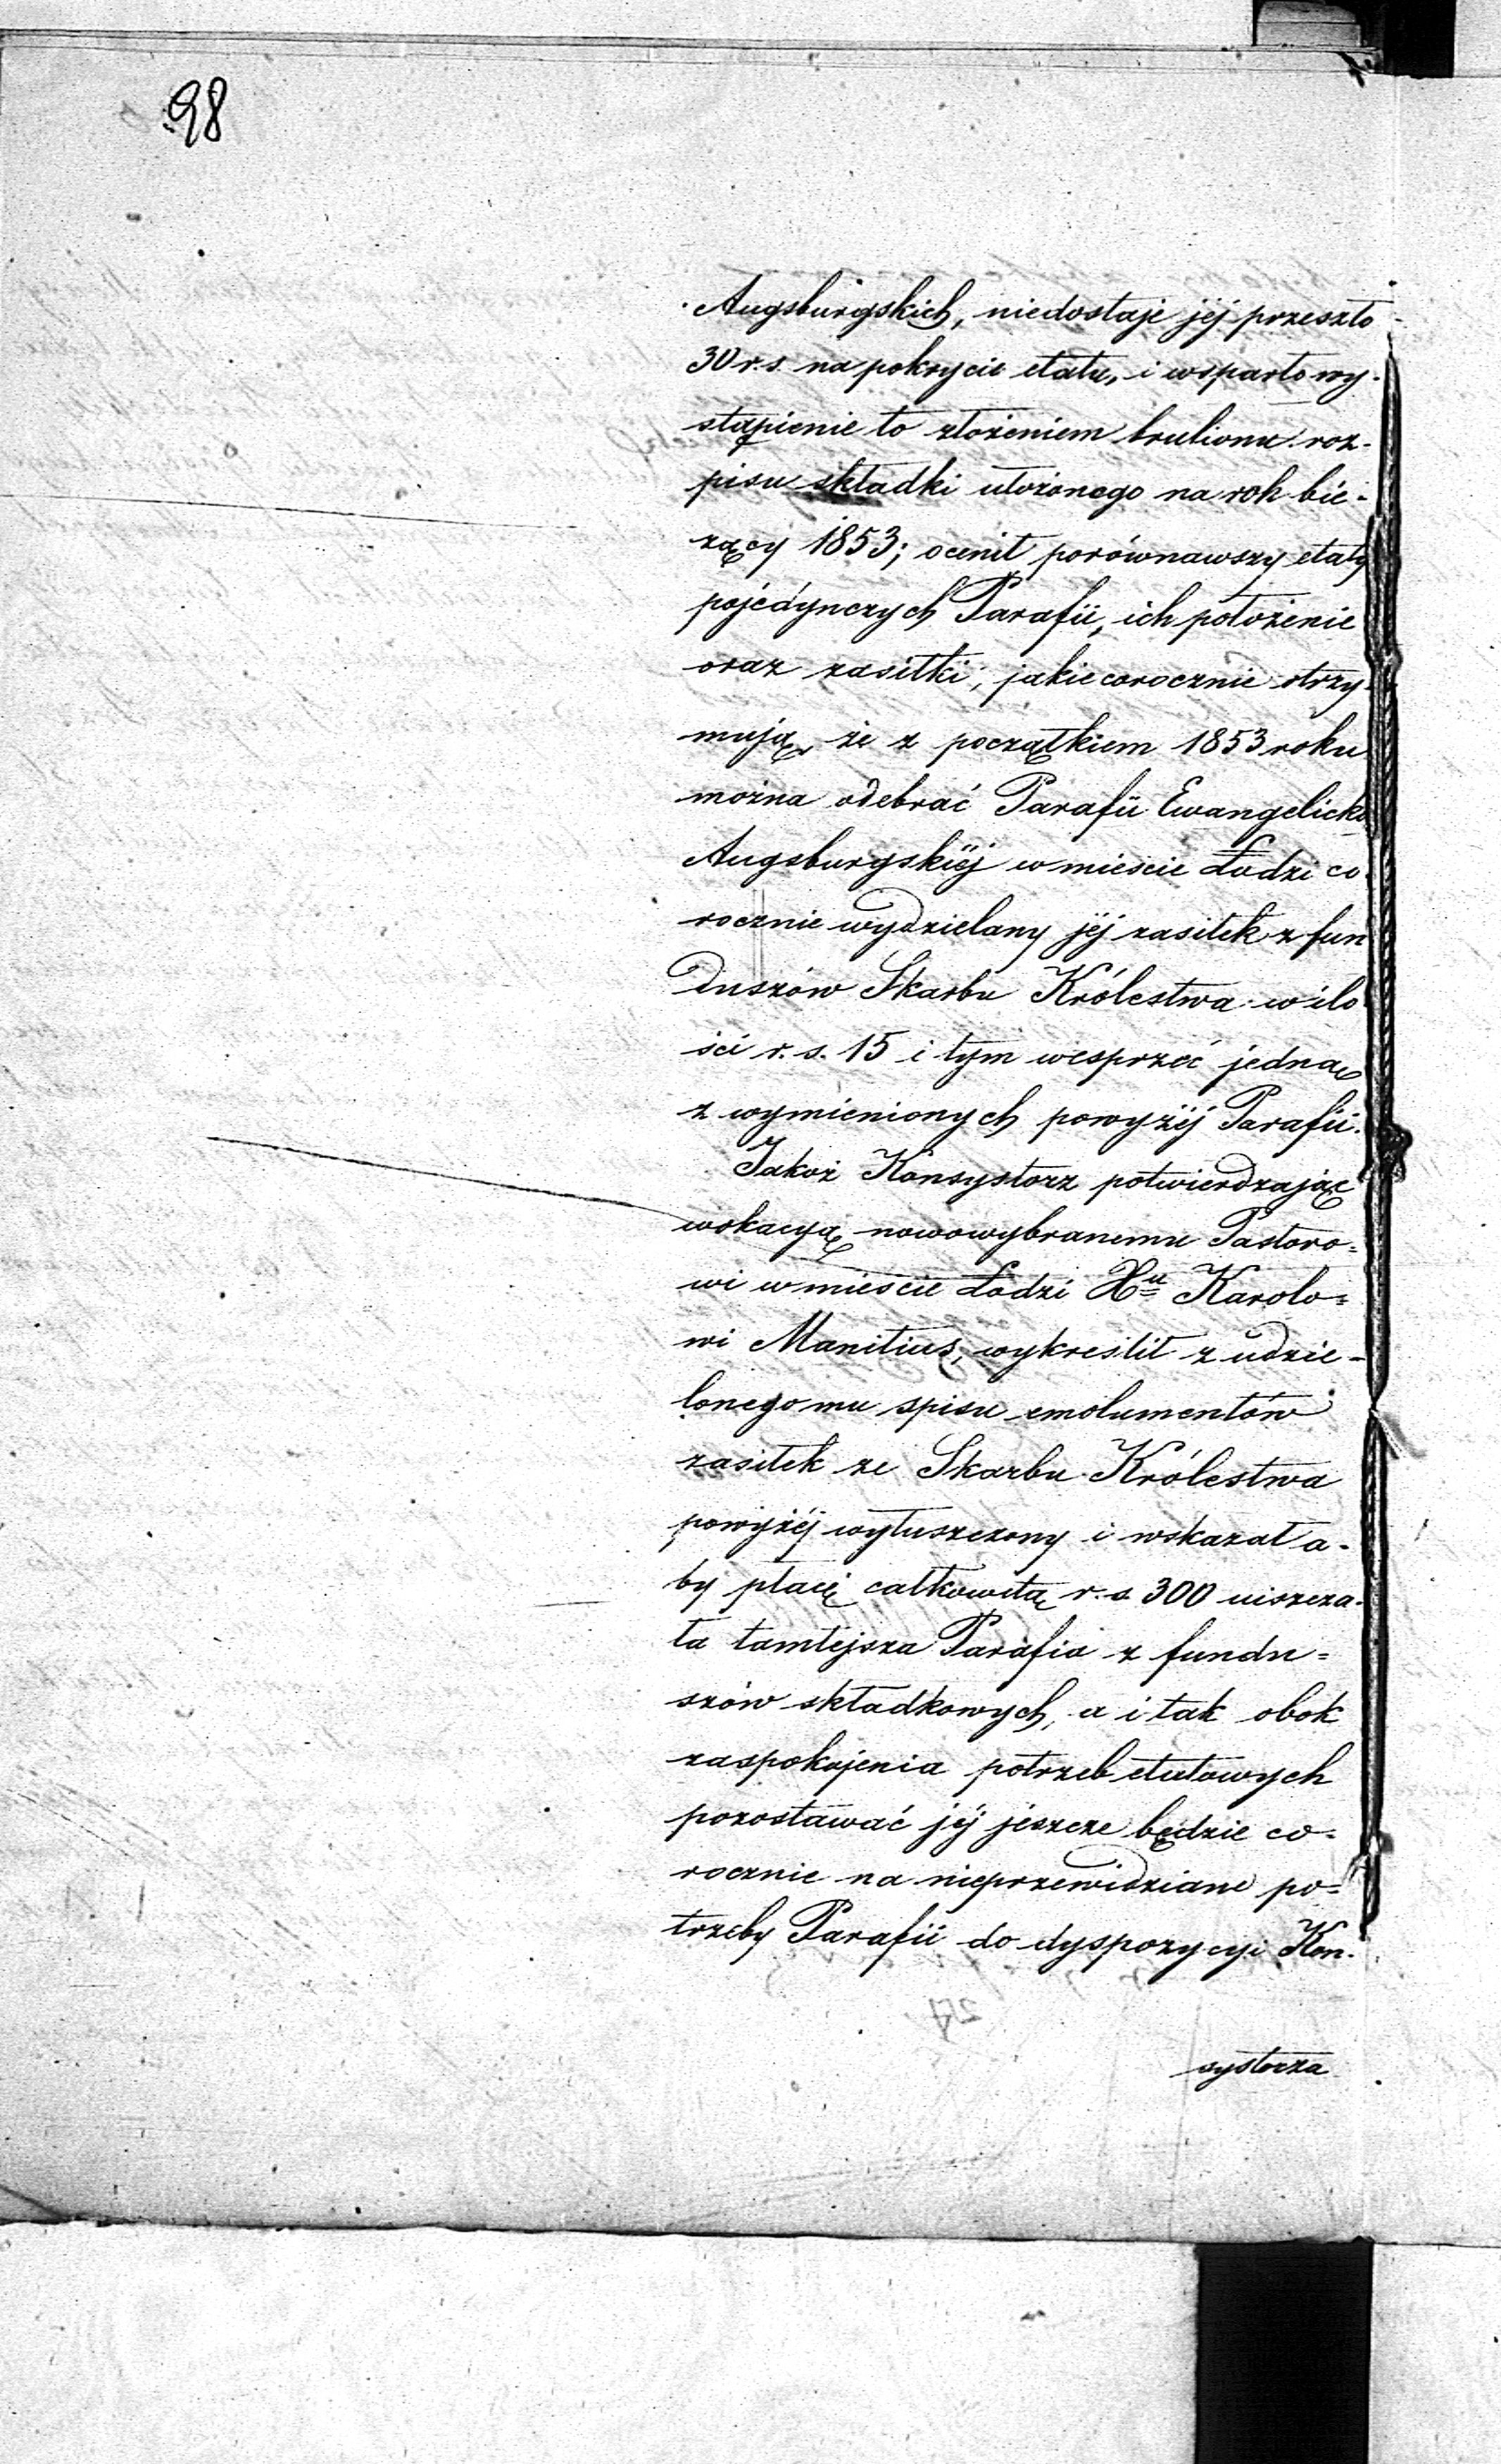 98
Augsburgskich, niedostaje jéj przeszło
30 r.s. na pokrycie etatu, i wsparto wy-
stąpienie to złożeniem brulionu roz-
pisu składki ułożonego na rok bié-
żący 1853; ocenił porównawszy etaty
pojedynczych Parafii, ich położenie
oraz zasiłki, jakie corocznie otrzy-
mują, że z początkiem 1853 roku
można odebrać Parafii Ewangelicko
Augsburgskiéj w mieście Łodzi co-
rocznie wydzielany jéj zasiłek z fun
duszów Skarbu Królestwa w ilo
ści r. s. 15 i tym wesprzeć jedną
z wymienionych powyżéj Parafii.
Jakoż Konsystorz potwierdzając
wokacyą nowowybranemu Pastoro=
wi w mieście Łodzi Xu Karolo=
wi Manitius, wykreślił z udzie-
lonego mu spisu emolumentów
zasiłek ze Skarbu Królestwa
powyżéj wyłuszczony i wskazał a-
by płacę całkowitą r. s. 300 uiszcza-
ła tamtejsza Parafia z fundu=
szów składkowych, a i tak obok
zaspokojenia potrzeb etatowych
pozostawać jéj jeszcze będzie co-
rocznie na nieprzewidziane po=
trzeby Parafii do dyspozycyi Kon-
systorza